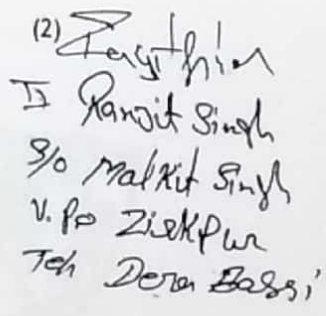 (2)
II Ranjit Singh
S/o Malkit Singh
V. Po Zirkpur
Teh Dera Bassi